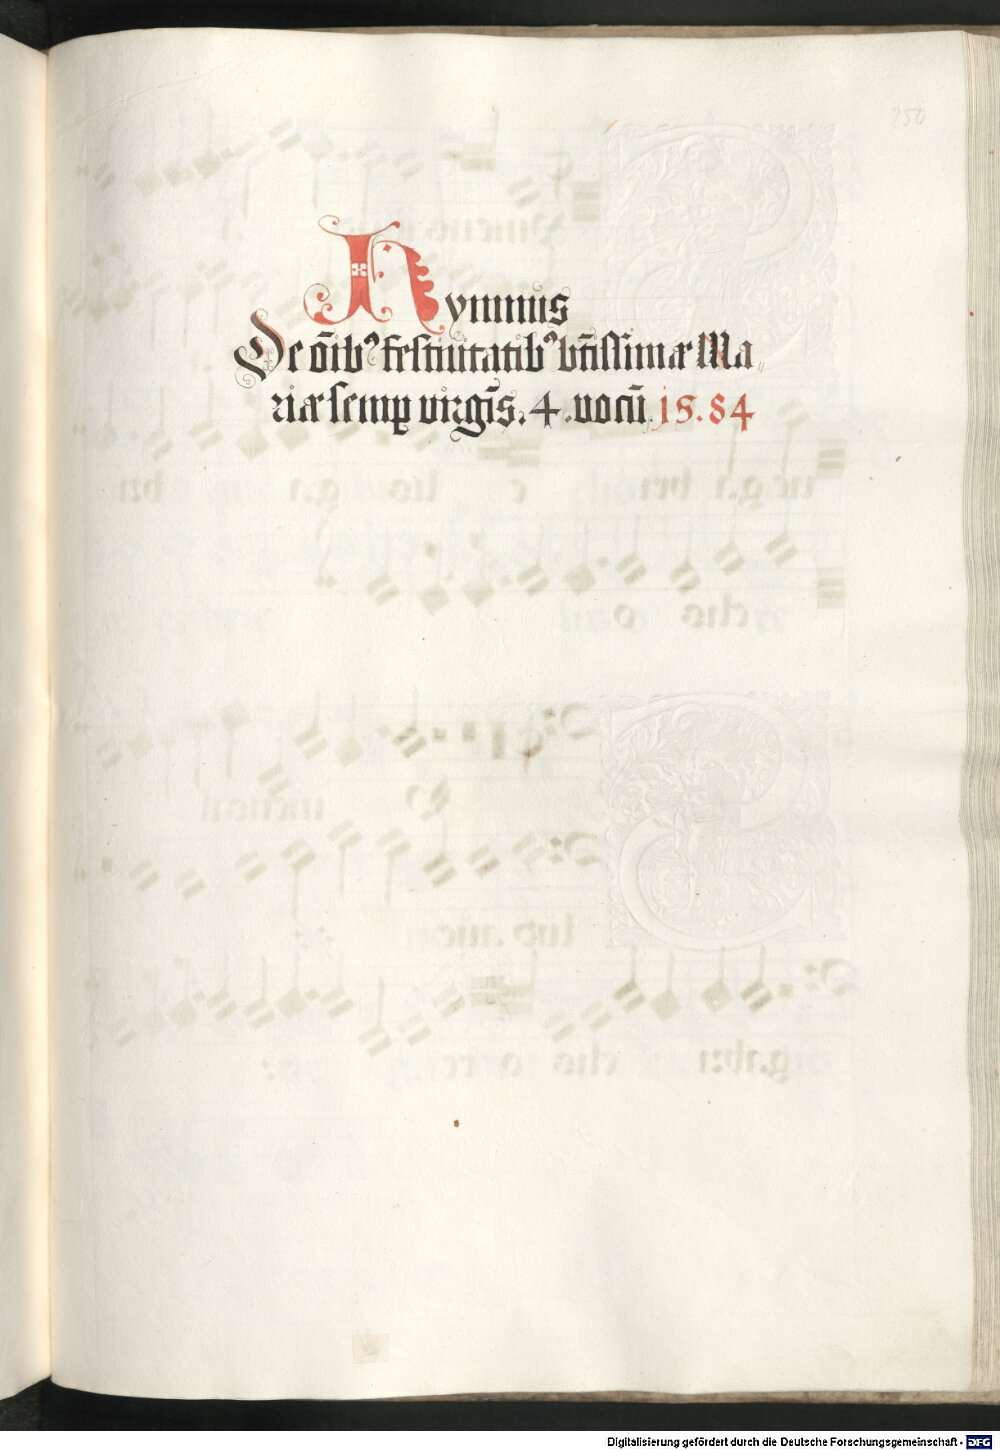 250
Hymnus
De oīb⁹ festiuitatib⁹ btīssimæ Ma„
riæ semꝑ uirgīs. 4. uocū. 15.84
Digitalisierung gefördert durch die Deutsche Forschungsgemeinschaft - DFG